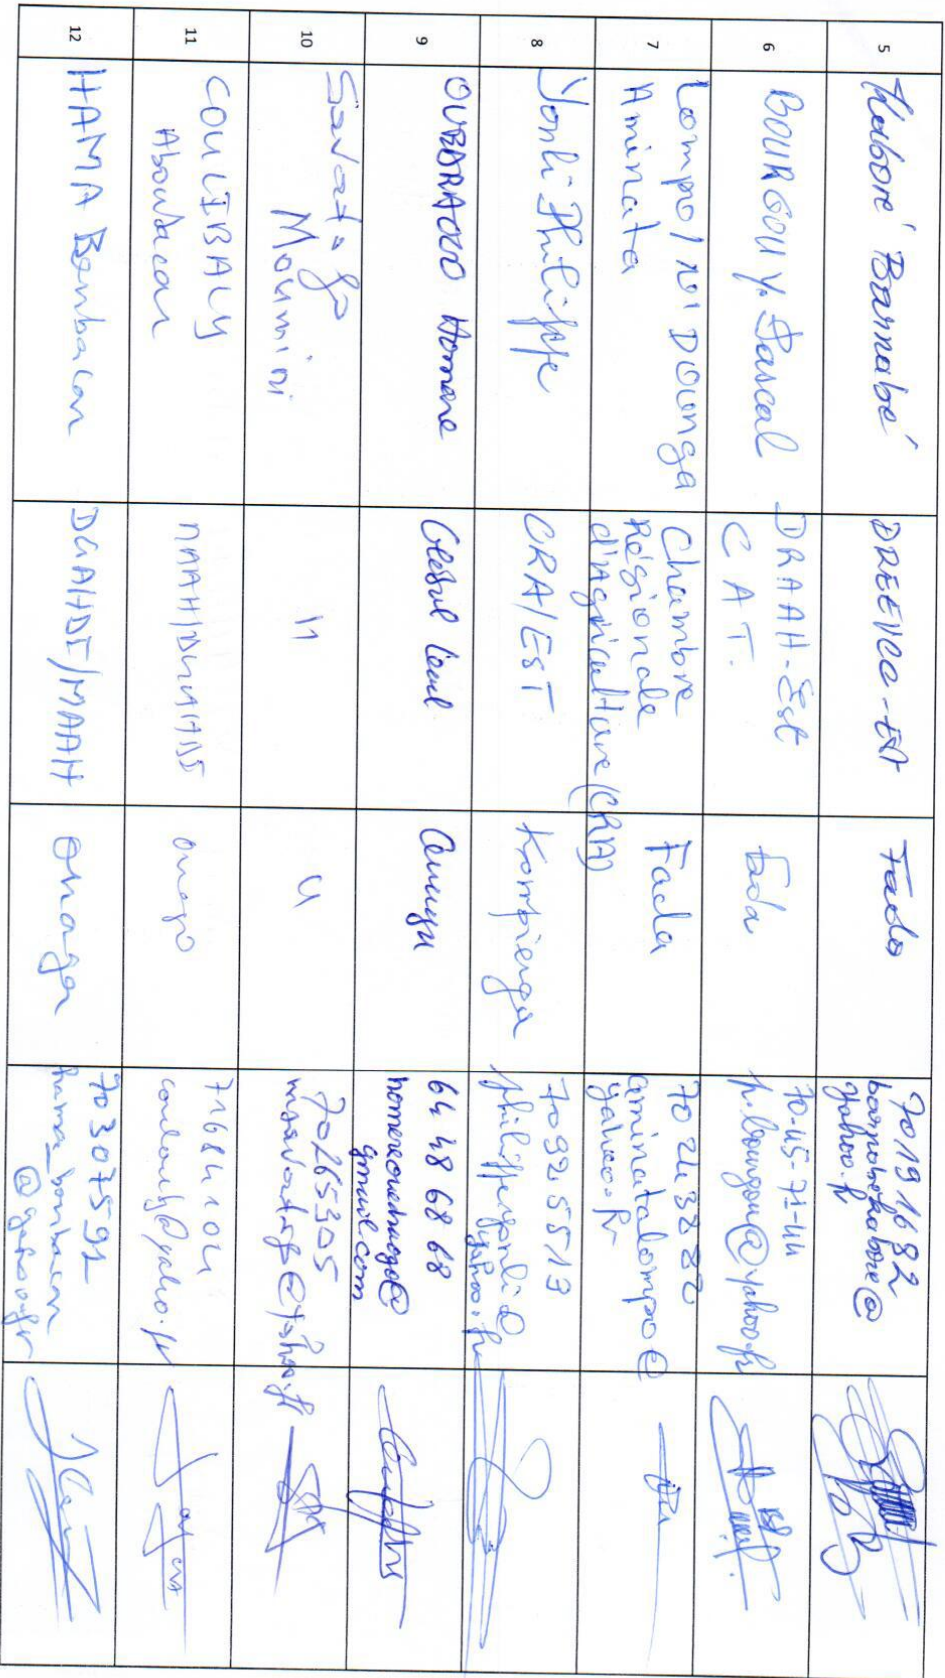 5
Kaboré Barnabé
DREEVCC-Est
Fada
70191682
barnabekabore@
yahoo.fr
6
BOURGOU Y. Pascal
DRAAH-Est
C A T.
Fada
70-45-71-44
p.bourgou@yahoo.fr
7
Lompo / née DOUNGA
Aminata
Chambre
Régionale
d'Agriculture (CRA)
Fada
70 24 38 22
aminatalompo@
yahoo.fr
8
Yonli Philippe
CRA/EST
Kompienga
70925513
philippeyonli@
yahoo.fr
9
OUEDRAOGO Homere
64 48 68 68
homereouedraogo@
gmail.com
10
Savadogo
Moumini
"
"
70265305
11
COULIBALY
Aboubacar
Ouaga
71684104
12
HAMA Boubacar
DGAHDI/MAAH
Ouaga
70307591
hama_boubacar
@yahoo.fr